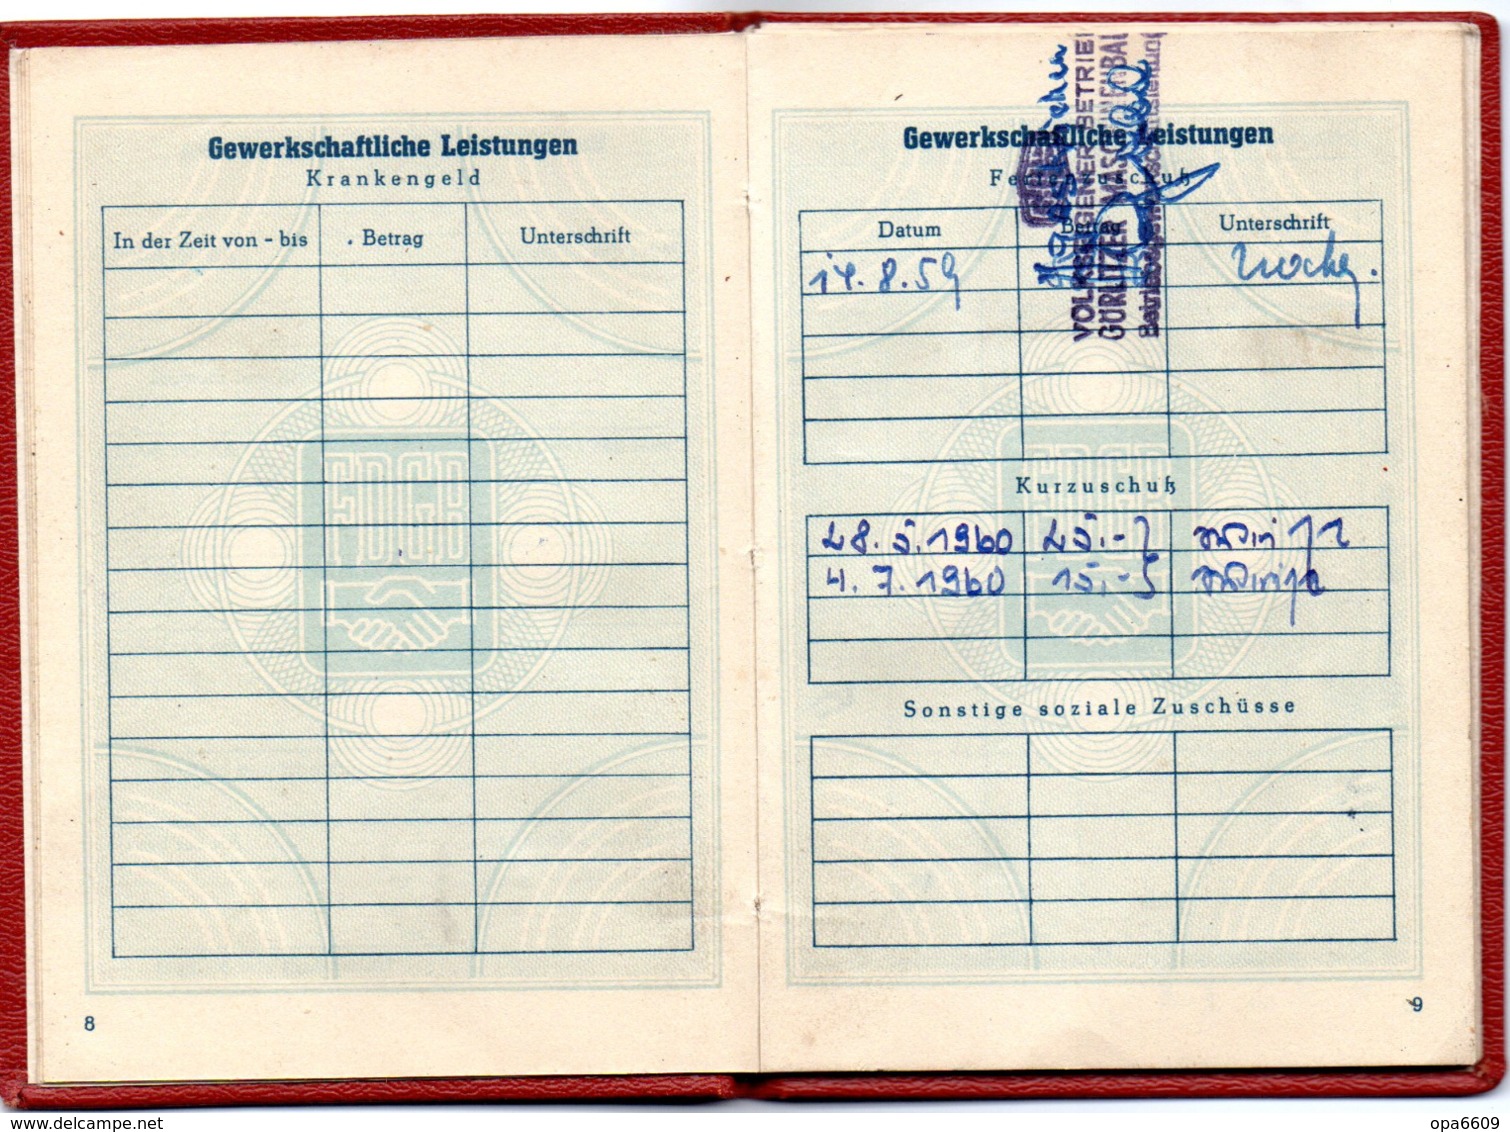 Gewerkschaftliche Leistungen
Krankengeld
In der Zeit von - bis Betrag Unterschrift
FDGB
8
Gewerkschaftliche Leistungen
Ferienzuschuß
Datum Betrag Unterschrift
14.8.59
VOLKSEIGENER BETRIEB
GÖRLITZER MASCHINENBAU
Kurzuschuß
28.5.1960 25,-
4.7.1960 15,-
FDGB
Sonstige soziale Zuschüsse
9
www.delcampe.net
opa6609